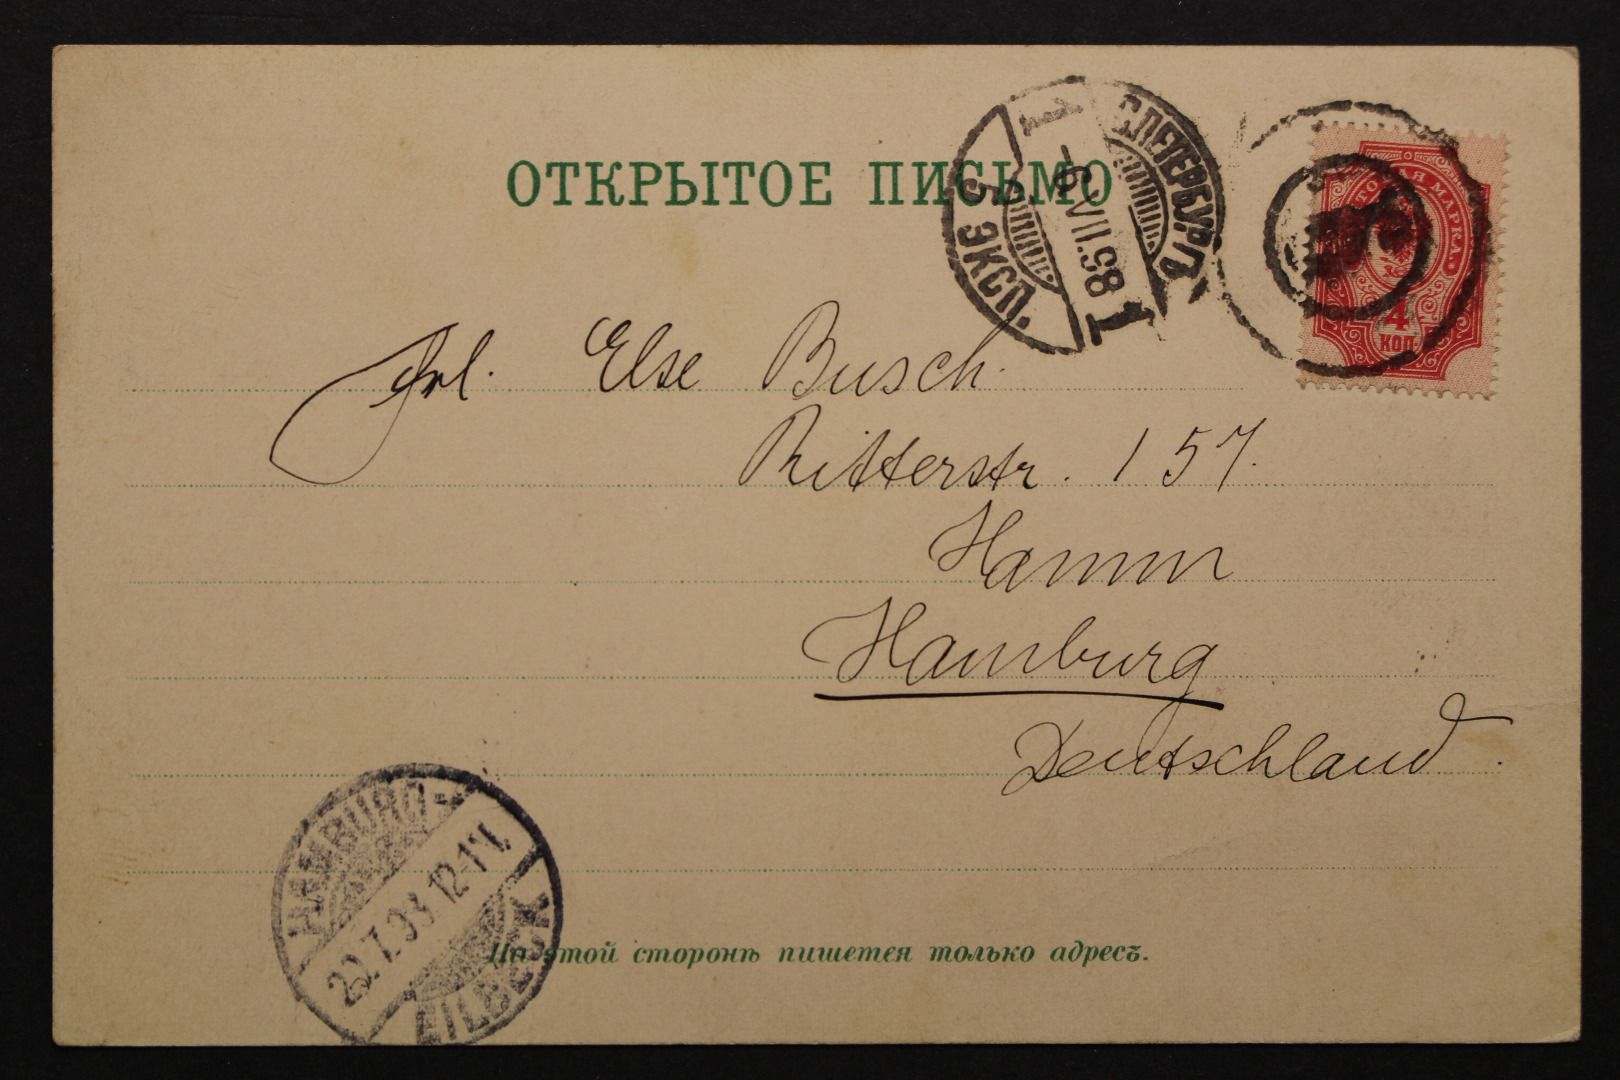 ОТКРЫТОЕ ПИСЬМО
С.ПЕТЕРБУРГЪ
1
-6 VII.98
1
5 ЭКСП.
МАРКА
4
КОП.
Frl. Else Busch.
Ritterstr. 157.
Hamm
Hamburg
Deutschland.
HAMBURG-
20.7.98.12-1N.
EILBECK
На этой сторонѣ пишется только адресъ.